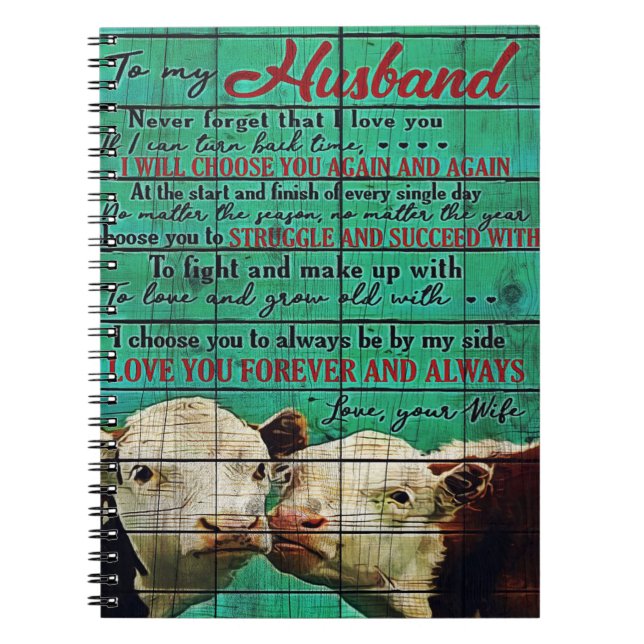 To my Husband
Never forget that I love you
If I can turn back time,
I WILL CHOOSE YOU AGAIN AND AGAIN
At the start and finish of every single day
No matter the season, no matter the year
oose you to STRUGGLE AND SUCCEED WITH
To fight and make up with
To love and grow old with
I choose you to always be by my side
LOVE YOU FOREVER AND ALWAYS
Love, your Wife